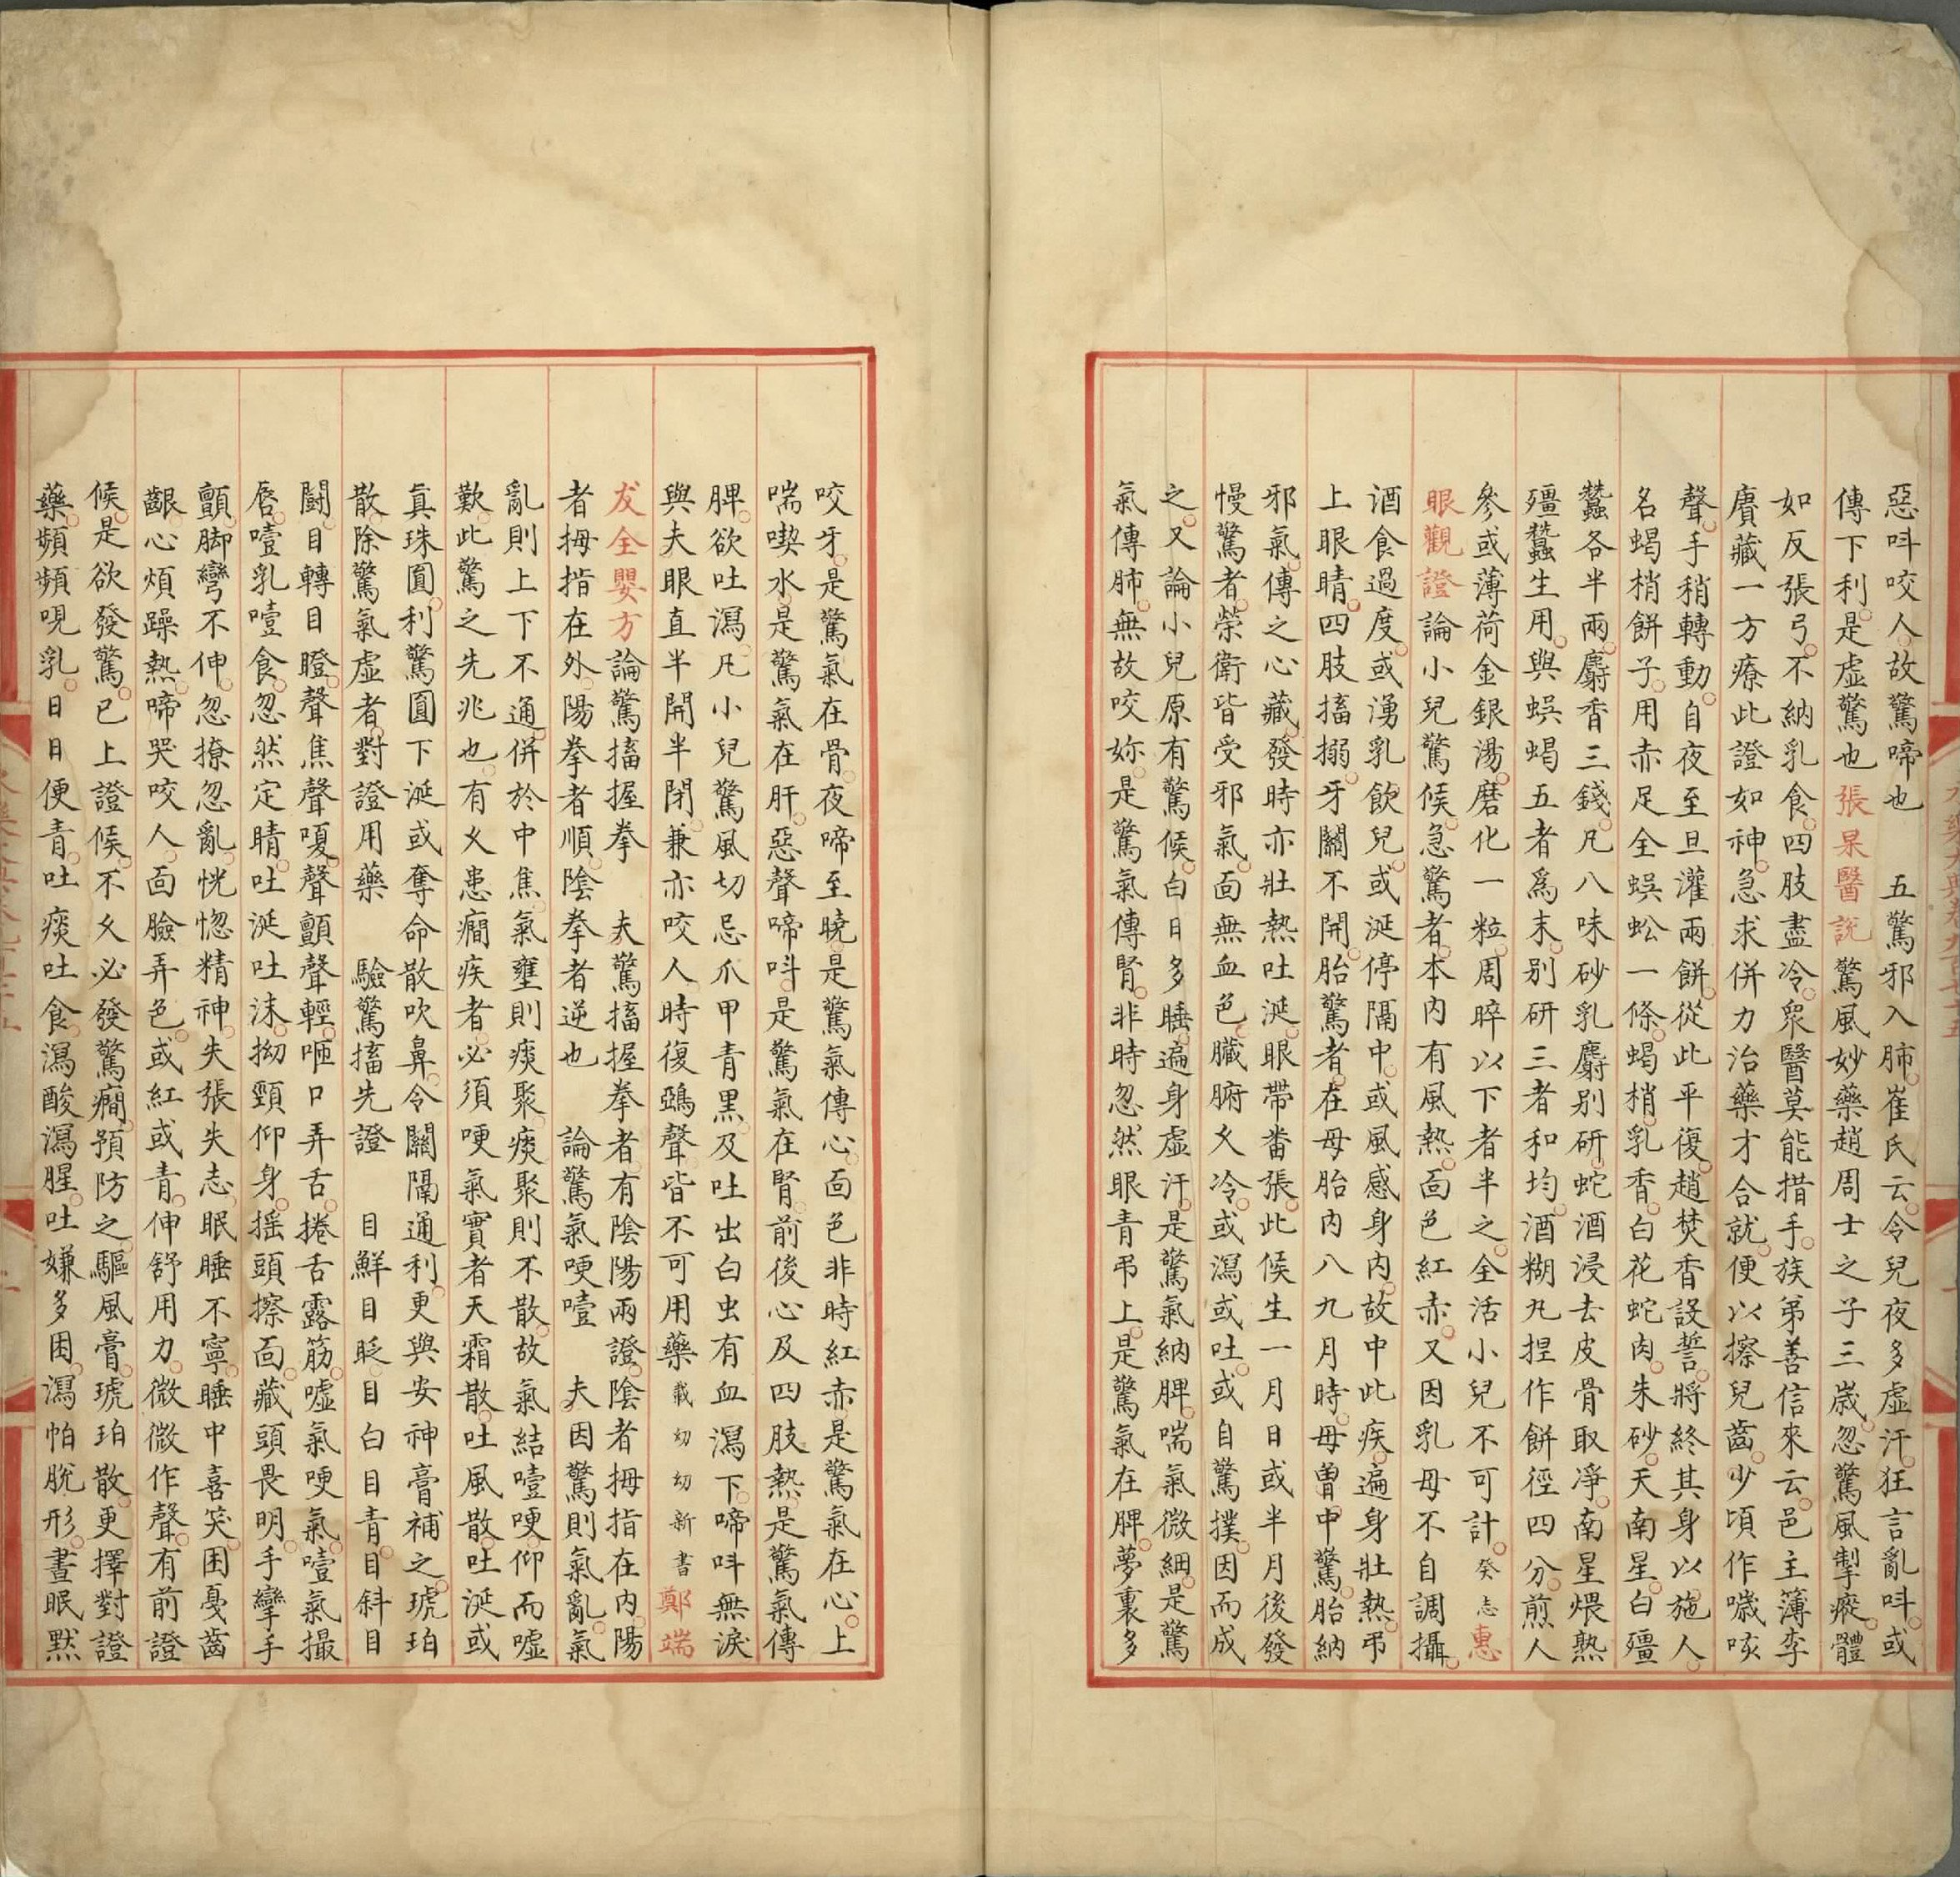 惡呌咬人故驚啼也　五驚邪入肺崔氏云令兒夜多虛汗狂言亂呌或
傳下利是虛驚也張杲醫說驚風妙藥趙周士之子三歲忽驚風掣瘲體
如反張弓不納乳食四肢盡冷眾醫莫能措手族弟善信來云邑主簿李
賡藏一方療此證如神急求併力治藥才合就便以擦兒齒少頃作噦咳
聲手稍轉動自夜至旦灌兩餅從此平復趙焚香設誓將終其身以施人
名蝎梢餅子用赤足全蜈蚣一條蝎梢乳香白花蛇肉朱砂天南星白殭
蠶各半兩麝香三錢凡八味砂乳麝別研蛇酒浸去皮骨取凈南星煨熟
殭蠶生用與蜈蝎五者爲末別研三者和均酒糊丸捏作餅徑四分煎人
參或薄荷金銀湯磨化一粒周晬以下者半之全活小兒不可計癸志惠
眼觀證論小兒驚候急驚者本內有風熱面色紅赤又因乳母不自調攝
酒食過度或湧乳飲兒或涎停隔中或風感身內故中此疾遍身壯熱弔
上眼睛四肢搐搦牙關不開胎驚者在母胎內八九月時母曽中驚胎納
邪氣傳之心藏發時亦壯熱吐涎眼帶畨張此候生一月日或半月後發
慢驚者榮衛皆受邪氣面無血色臟腑乆冷或瀉或吐或自驚撲因而成
之又論小兒原有驚候白日多睡遍身虛汗是驚氣納脾喘氣微細是驚
氣傳肺無故咬妳是驚氣傳腎非時忽然眼青弔上是驚氣在脾夢裏多
咬牙是驚氣在骨夜啼至曉是驚氣傳心面色非時紅赤是驚氣在心上
喘喫水是驚氣在肝惡聲啼呌是驚氣在腎前後心及四肢熱是驚氣傳
脾欲吐瀉凡小兒驚風切忌爪甲青黑及吐出白虫有血瀉下啼呌無淚
與夫眼直半開半閉兼亦咬人時復鵶聲皆不可用藥載幼幼新書鄭端
友全嬰方論驚搐握拳　夫驚搐握拳者有陰陽兩證陰者拇指在內陽
者拇指在外陽拳者順陰拳者逆也　論驚氣哽噎　夫因驚則氣亂氣
亂則上下不通併於中焦氣壅則痰聚痰聚則不散故氣結噎哽仰而噓
歎此驚之先兆也有乆患癇疾者必須哽氣實者天霜散吐風散吐涎或
真珠圓利驚圓下涎或奪命散吹鼻令關隔通利更與安神膏補之琥珀
散除驚氣虛者對證用藥　驗驚搐先證　目鮮目眨目白目青目斜目
鬪目轉目瞪聲焦聲嗄聲顫聲輕咂口弄舌捲舌露筋噓氣哽氣噎氣撮
唇噎乳噎食忽然定睛吐涎吐沫拗頸仰身搖頭擦面藏頭畏明手攣手
顫脚彎不伸忽撩忽亂恍惚精神失張失志眠睡不寧睡中喜笑困戛齒
齦心煩躁熱啼哭咬人面臉弄色或紅或青伸舒用力微微作聲有前證
候是欲發驚已上證候不乆必發驚癇預防之驅風膏琥珀散更擇對證
藥頻頻哯乳日日便青吐痰吐食瀉酸瀉腥吐嫌多困瀉帕脫形晝眠默